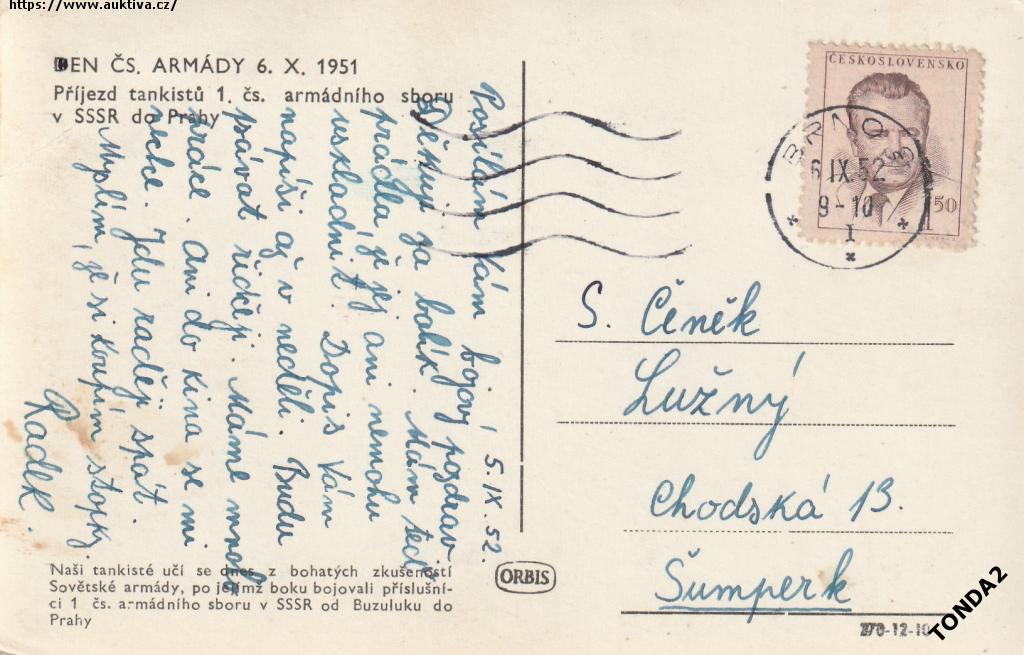 https://www.auktiva.cz/
DEN ČS. ARMÁDY 6. X. 1951
Příjezd tankistů 1. čs. armádního sboru
v SSSR do Prahy
Posílám Vám bojový pozdrav 5. IX. 52.
Děkuji za balík. Mám teď
prádla, že jej ani nemohu
uskladnit. Dopis Vám
napíši až v neděli. Budu
psávat řidčeji. Máme mnoho
práce. Ani do kina se mi
nechce. Jdu raději spát.
Myslím, že si koupím stojky.
Radek.
Naši tankisté učí se dnes z bohatých zkušeností
Sovětské armády, po jejímž boku bojovali příslušní-
ci 1 čs. armádního sboru v SSSR od Buzuluku do
Prahy
ORBIS
ČESKOSLOVENSKO
1 50
BRNO
6. IX. 52
9-10
I
S. Čeněk
Lužný
Chodská 13.
Šumperk
270-12-10
TONDA2